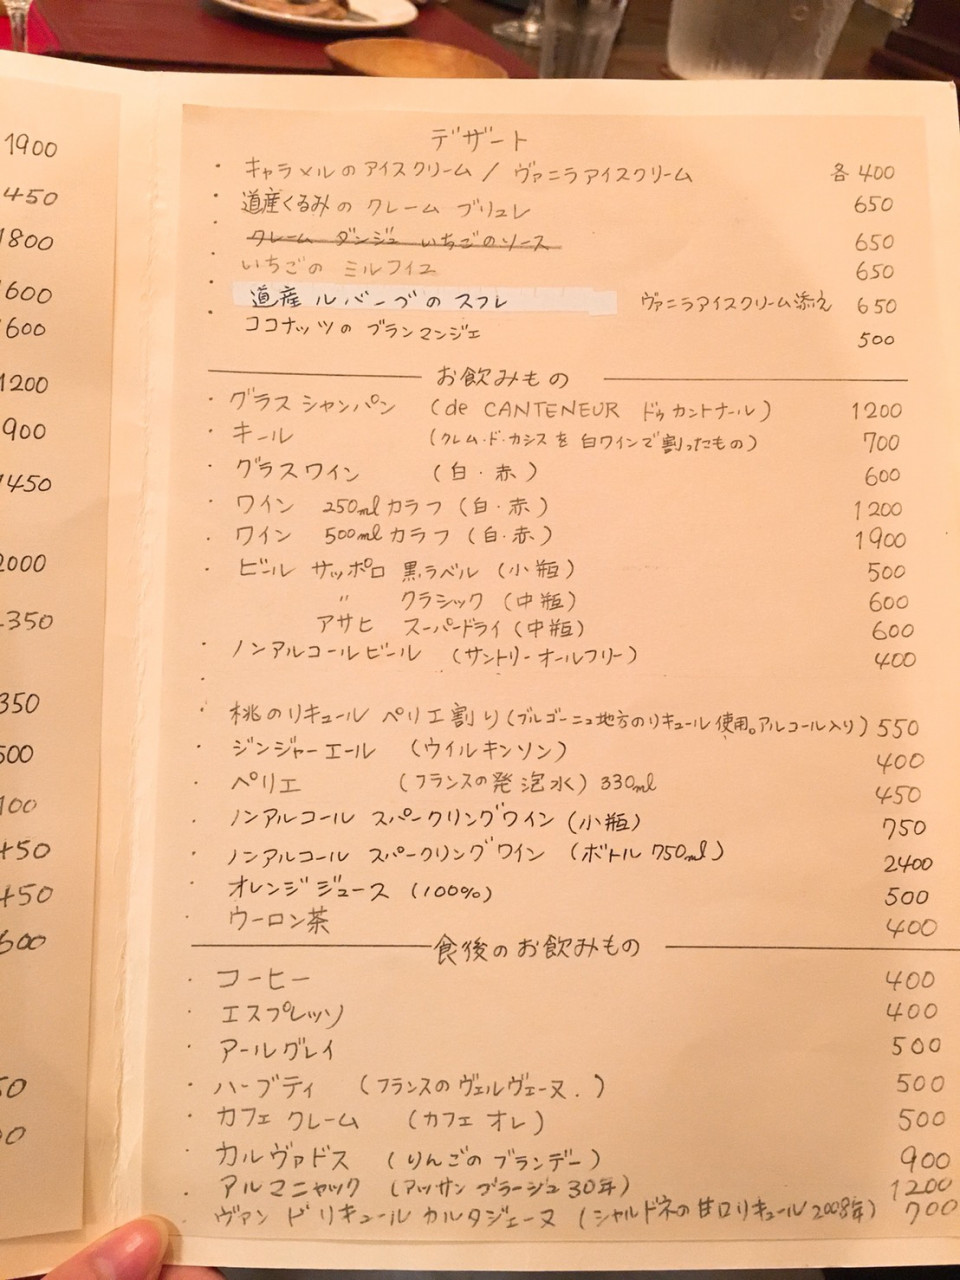 1900
450
1800
1600
1600
1200
900
1450
2000
1350
350
500
100
450
450
600
デザート
・キャラメルのアイスクリーム / ヴァニラアイスクリーム 各400
・道産くるみの クレーム ブリュレ 650
・クレーム ダンジュ いちごのソース 650
・いちごの ミルフィユ 650
・道産 ルバーブの スフレ ヴァニラアイスクリーム添え 650
・ココナッツの ブランマンジェ 500
お飲みもの
・グラス シャンパン (de CANTENEUR ドゥ カントナール) 1200
・キール (クレム・ド・カシスを 白ワインで割ったもの) 700
・グラスワイン (白・赤) 600
・ワイン 250mlカラフ (白・赤) 1200
・ワイン 500mlカラフ (白・赤) 1900
・ビール サッポロ 黒ラベル (小瓶) 500
〃 クラシック (中瓶) 600
アサヒ スーパードライ (中瓶) 600
・ノンアルコールビール (サントリーオールフリー) 400
・桃のリキュール ペリエ割り (ブルゴーニュ地方のリキュール使用。アルコール入り) 550
・ジンジャーエール (ウイルキンソン) 400
・ペリエ (フランスの発泡水) 330ml 450
・ノンアルコール スパークリングワイン (小瓶) 750
・ノンアルコール スパークリングワイン (ボトル 750ml) 2400
・オレンジジュース (100%) 500
・ウーロン茶 400
食後のお飲みもの
・コーヒー 400
・エスプレッソ 400
・アールグレイ 500
・ハーブティ (フランスの ヴェルヴェーヌ.) 500
・カフェ クレーム (カフェ オレ) 500
・カルヴァドス (りんごの ブランデー) 900
・アルマニャック (アッサンブラージュ 30年) 1200
・ヴァン ド リキュール カルタジェーヌ (シャルドネの甘口リキュール 2008年) 700